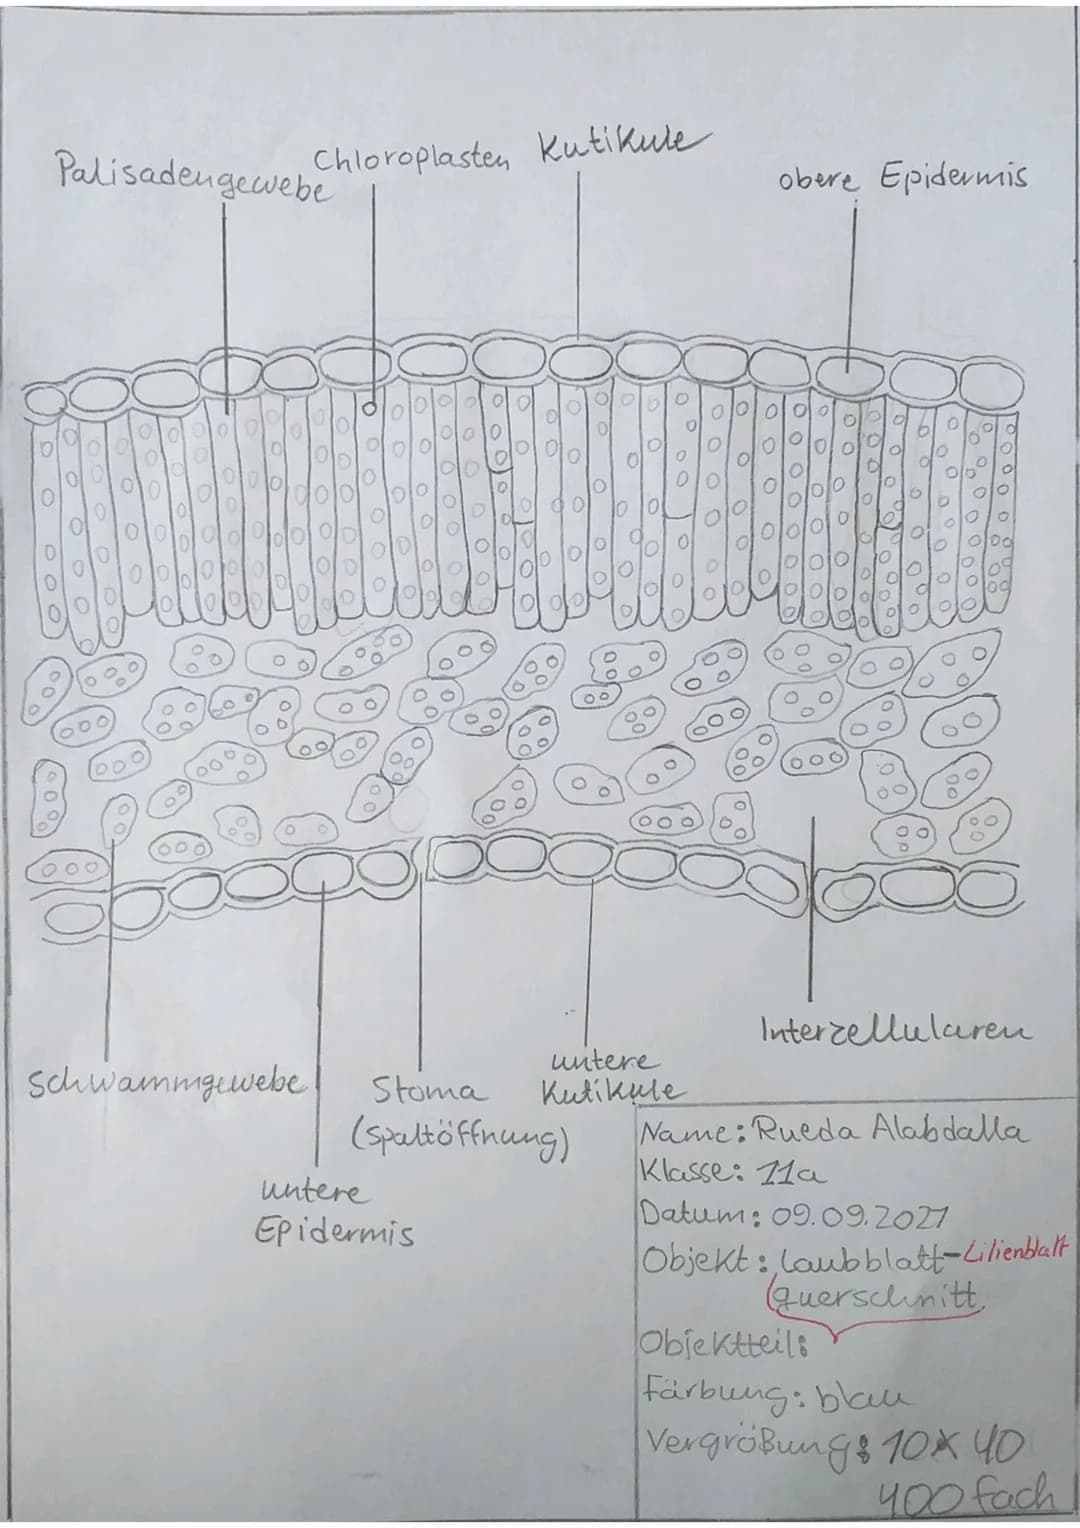 Palisadengewebe
Chloroplasten
Kutikule
obere Epidermis
Schwammgewebe
untere
Epidermis
Stoma
(Spaltöffnung)
untere
Kutikule
Interzellularen
Name: Rueda Alabdalla
Klasse: 11a
Datum: 09.09.2021
Objekt: Laubblatt-Lilienblatt
querschnitt
Objektteil:
Färbung: blau
Vergrößung: 10x40
400 fach